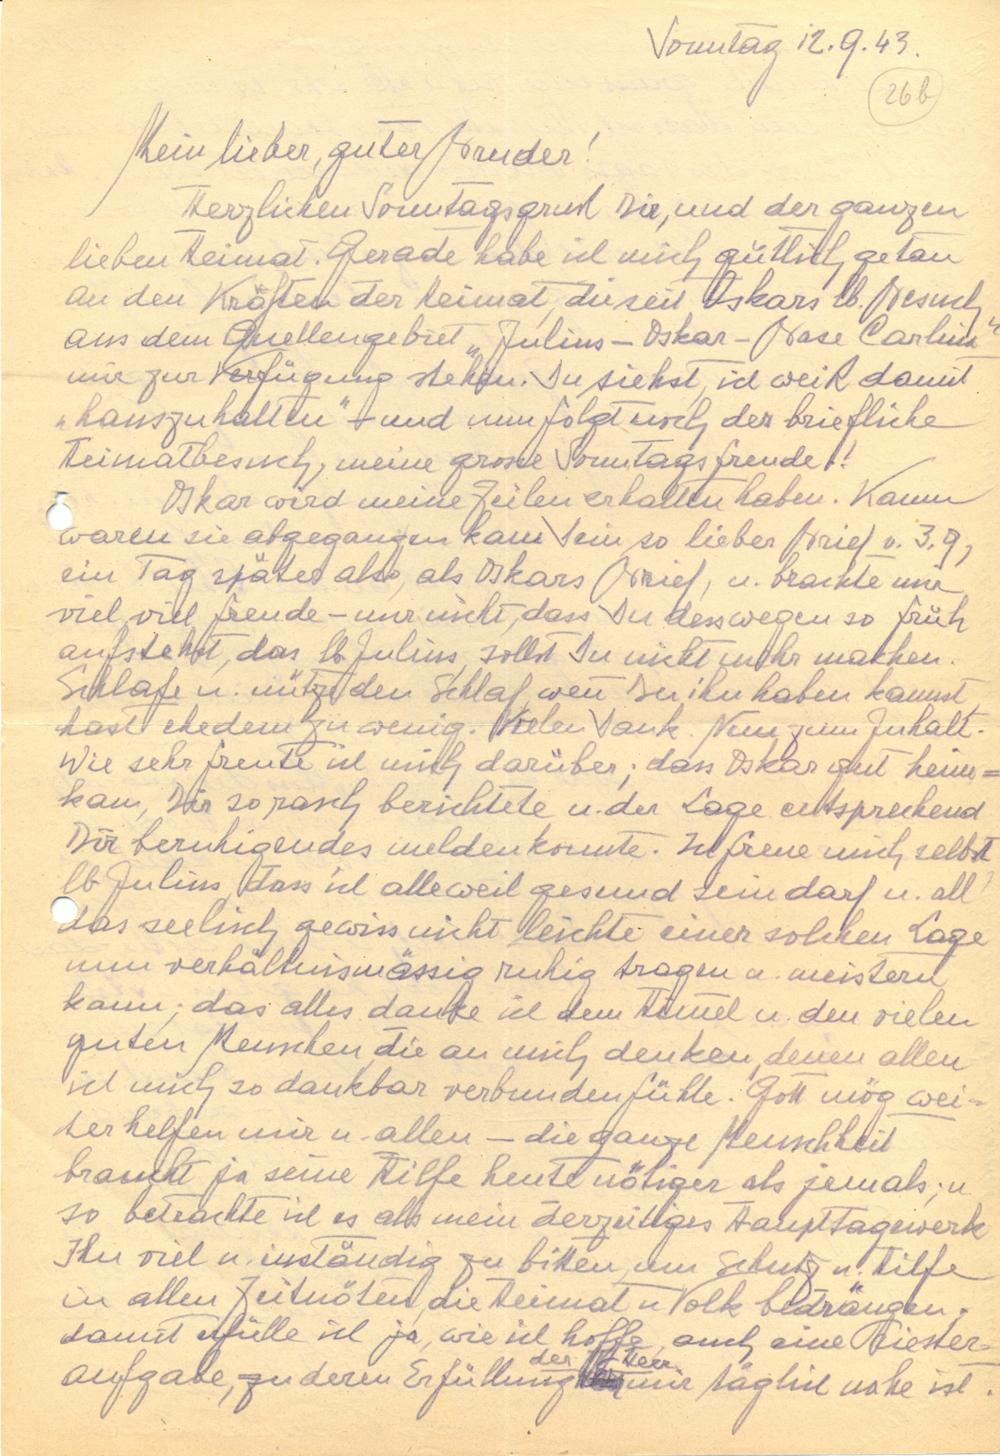 Sonntag 12.9.43.
26b
Mein lieber, guter Bruder!
Herzlichen Sonntagsgruß Dir, und der ganzen
lieben Heimat. Gerade habe ich mich gütlich getan
an den Kräften der Heimat, die seit Oskars lb. Besuch
aus dem Quellengebiet „Julius – Oskar – Base Carlin"
mir zur Verfügung stehen. Du siehst, ich weiß damit
„hauszuhalten" – und nun folgt noch der briefliche
Heimatbesuch, meine grosse Sonntagsfreude!!
Oskar wird meine Zeilen erhalten haben. Kaum
waren sie abgegangen kam Dein so lieber Brief v. 3.9,
ein Tag später also, als Oskars Brief, u. brachte mir
viel, viel Freude – nur nicht, dass Du desswegen so früh
aufstehst, das lb Julius, sollst Du nicht mehr machen.
Schlafe u. nütze den Schlaf, wen̄ Du ihn haben kannst,
hast ehedem zu wenig. Vielen Dank. Nun zum Inhalt.
Wie sehr freute ich mich darüber, dass Oskar gut heim=
kam, Dir so rasch berichtete u. der Lage entsprechend
Dir beruhigendes melden konnte. Ich freue mich selbst
lb Julius, dass ich alleweil gesund sein darf u. all'
das seelisch gewiss nicht leichte einer solchen Lage
nun verhältnismässig ruhig tragen u. meistern
kann; das alles danke ich dem Him̄el u. den vielen
guten Menschen, die an mich denken, denen allen
ich mich so dankbar verbunden fühle. Gott mög wei=
ter helfen mir u. allen – die ganze Menschheit
braucht ja seine Hilfe heute nötiger als jemals; u
so betrachte ich es als mein derzeitiges Haupttagewerk
Ihn viel u. inständig zu bitten, um Schutz u. Hilfe
in allen Zeitnöten, die Heimat u Volk bedrängen;
damit erfülle ich ja, wie ich hoffe, auch eine Priester=
aufgabe, zu deren Erfüllung der Herr mir täglich nahe ist.